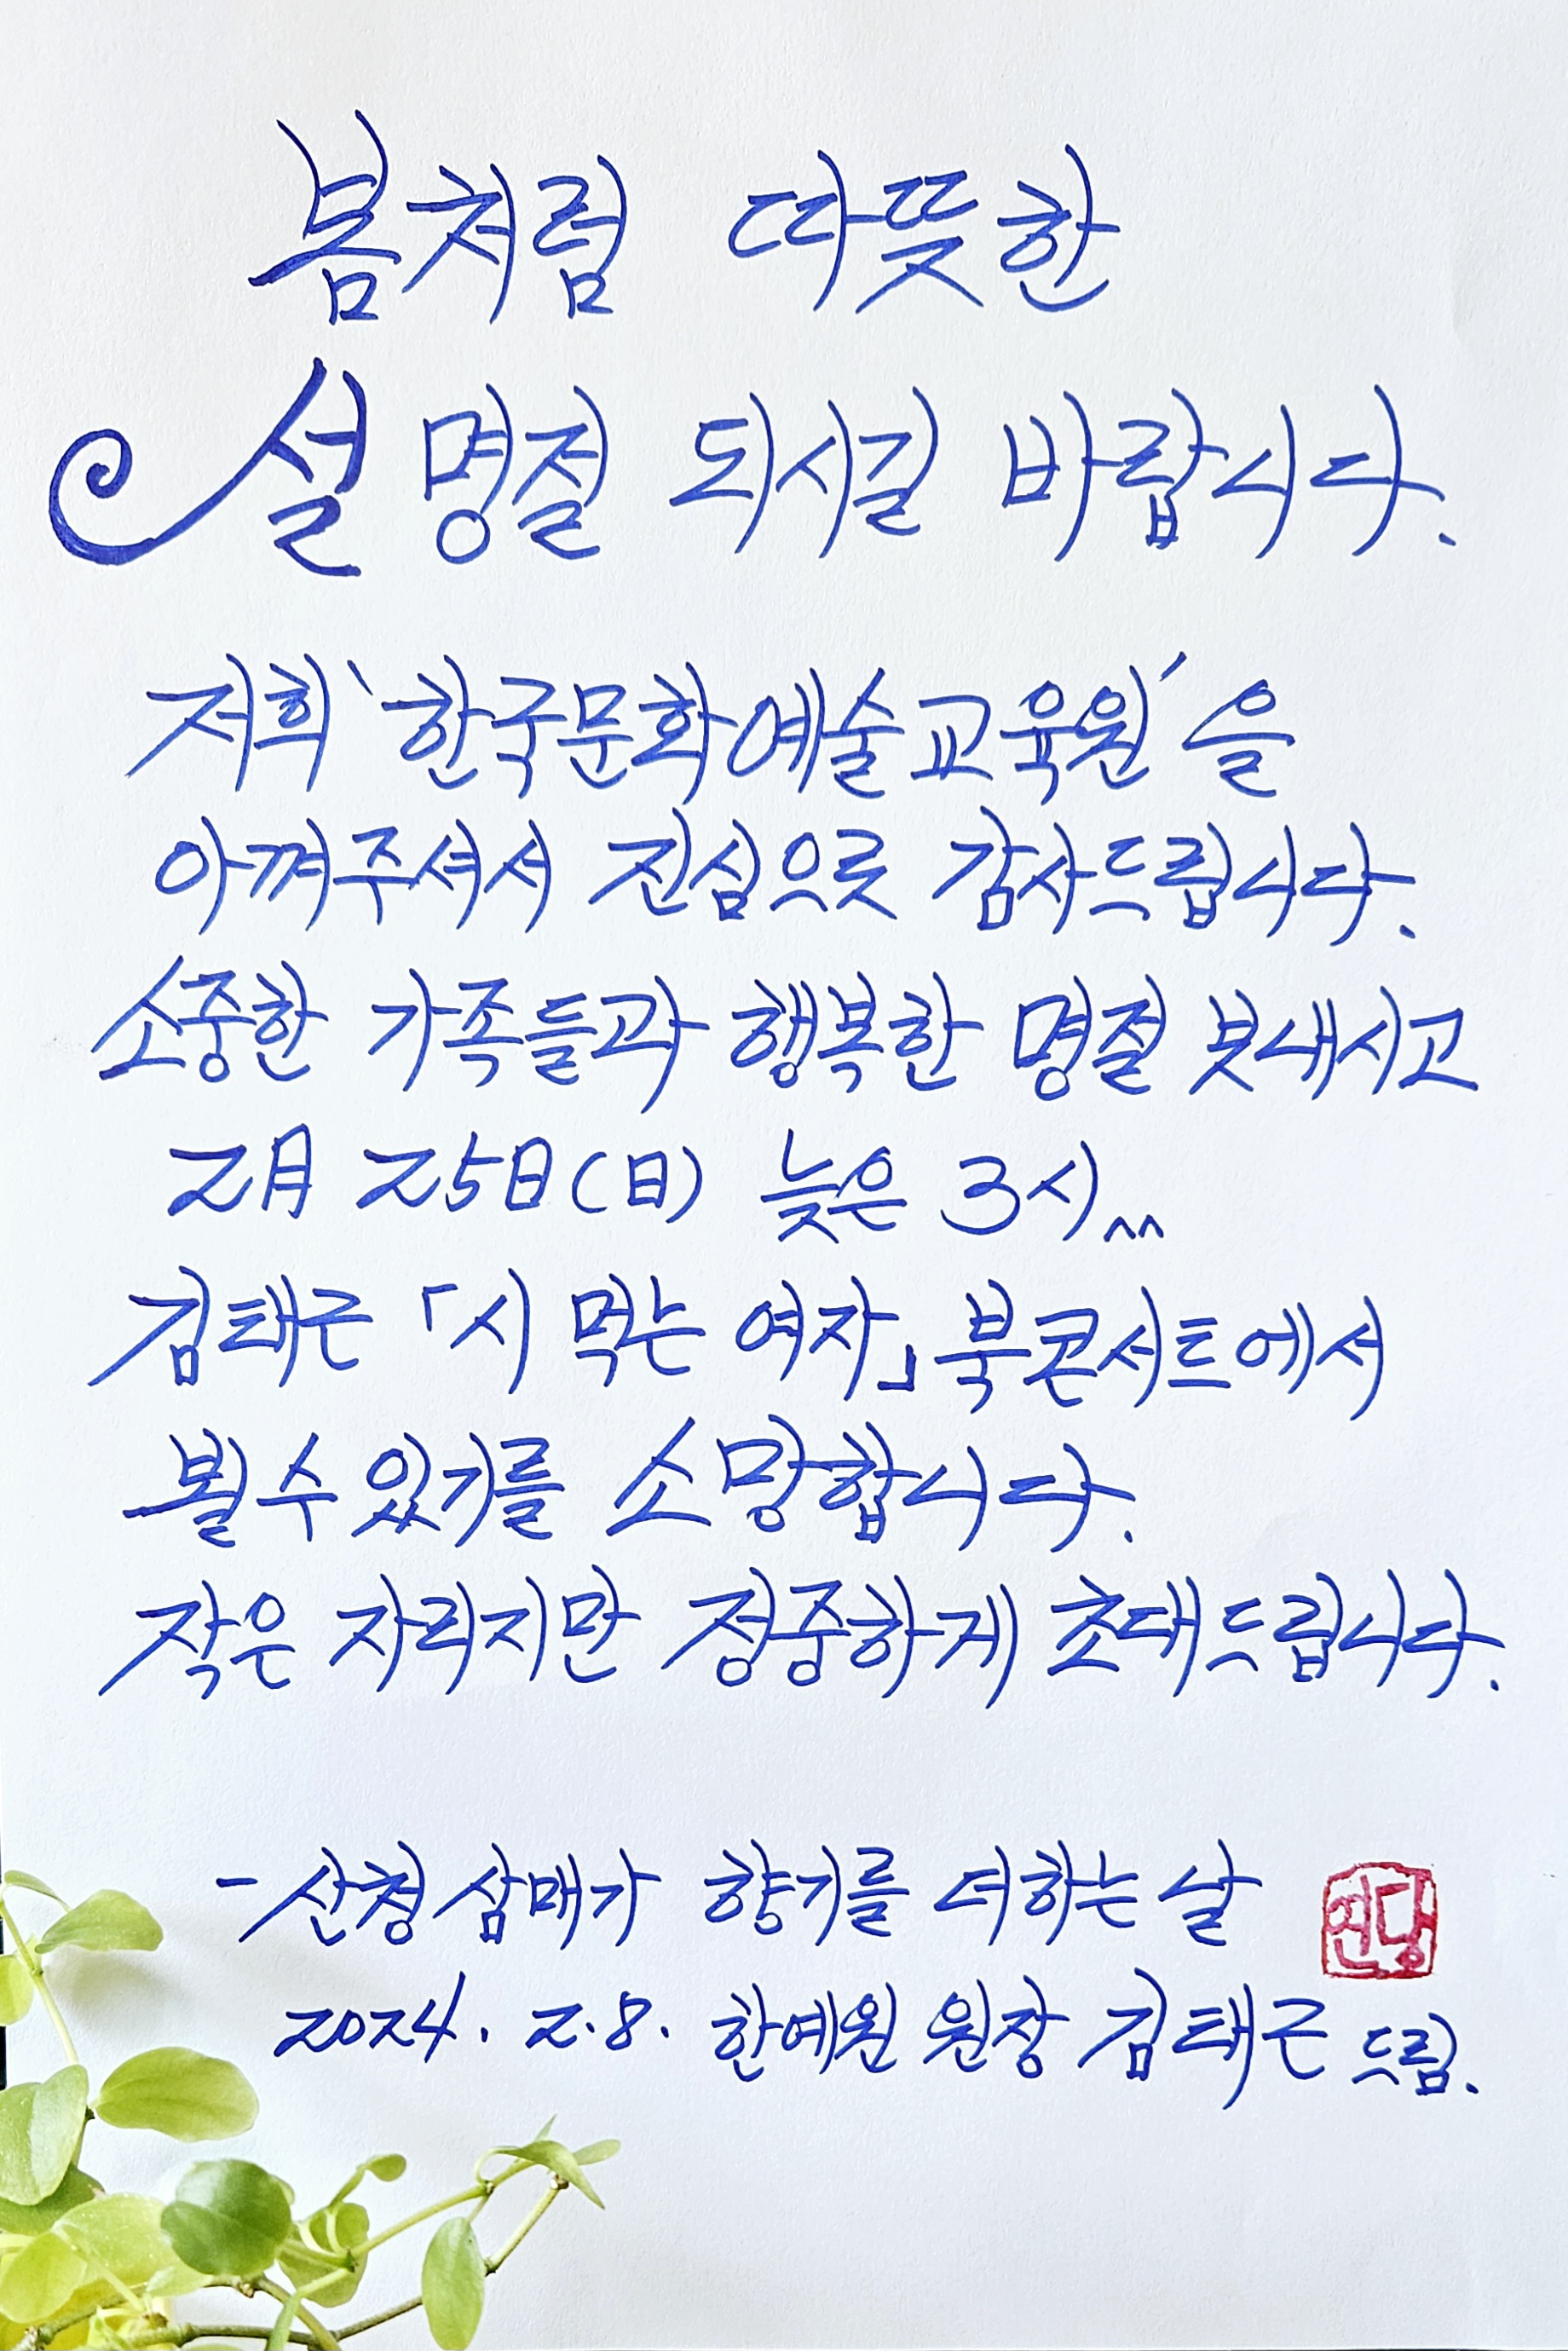 봄처럼 따뜻한
설 명절 되시길 바랍니다.
저희 '한국문화예술교육원'을
아껴주셔서 진심으로 감사드립니다.
소중한 가족들과 행복한 명절 보내시고
2月 25日(日) 늦은 3시^^
김태근 「시 먹는 여자」 북콘서트에서
뵐 수 있기를 소망합니다.
작은 자리지만 정중하게 초대드립니다.
- 산청 삼매가 향기를 더하는 날
2024. 2.8. 한예원 원장 김태근 드림.